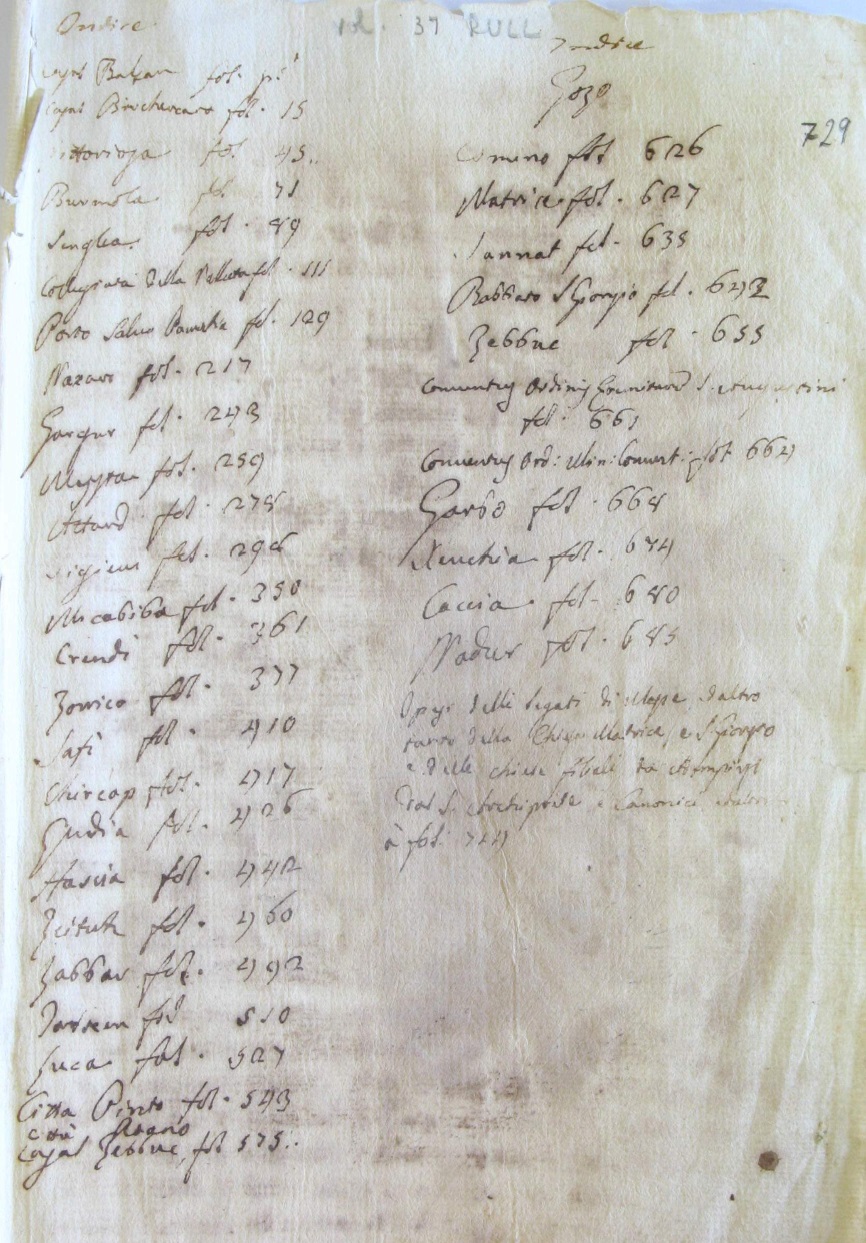 vol. 37 RULL
729
Indice
Casal Balzan fol. p.º
Casal Birchircara fol. 15
Vittoriosa fol. 45.
Burmola fol. 71
Senglea. fol. 89
Collegiata della Valletta fol. 111
Porto Salvo fol. 129
Naxaro fol. 217
Gargur fol. 243
fol. 259
Attard fol. 278
Sigieui fol. 296
Micabiba fol. 350
Crendi fol. 361
Zorrico fol. 377
Safi fol. 410
Chircop fol. 417
Gudia fol. 426
Ascia fol. 442
Zeitun fol. 460
Zabbar fol. 492
Tarscien fol. 510
Luca fol. 527
Citta Pinto fol. 543
Città Rohano
Casal Zebbuc, fol. 575..
Indice
Gozo
Comino fol. 626
Matrice fol. 627
Sannat fol. 635
Babbaro S. Giorgio fol. 642
Zebbuc fol. 655
Conventus Ordinis Eremitarum S. Augustini
fol. 661
Conventus Ord: Min: Convent: fol. 664
Garbo fol. 668
Xeuchia fol. 674
Caccia fol. 680
Nadur fol. 685
delli legati di Messe,
della Chiesa Matrice, e S. Giorgio
e delle chiese filiali da
dal S. Arciprete e Canonici
à fol. 744